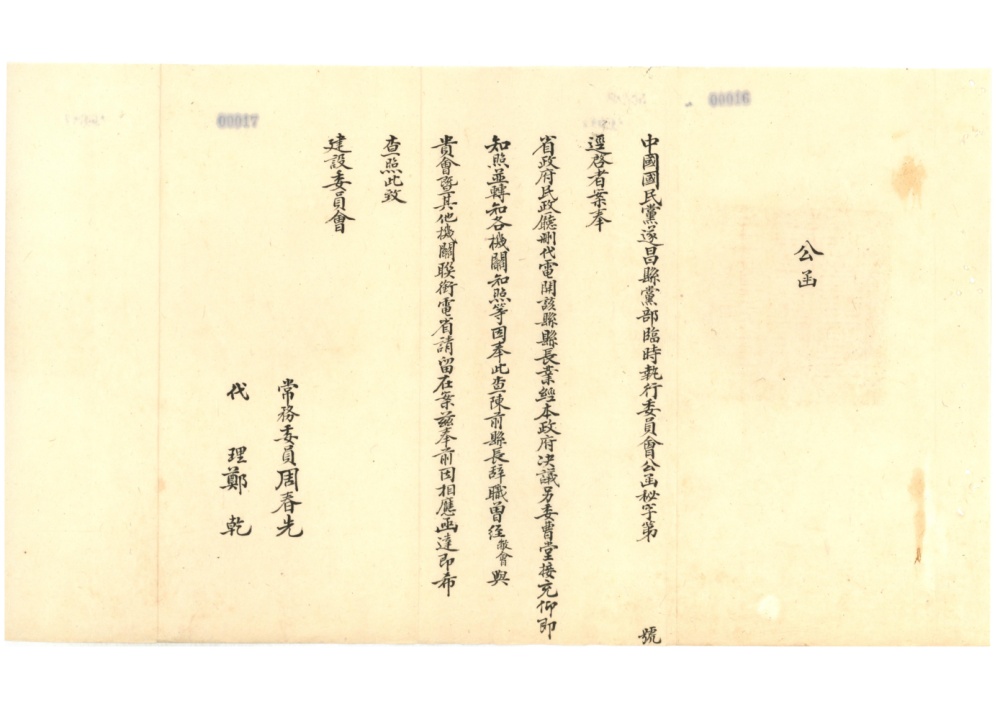 00016
公函
中國國民黨遂昌縣黨部臨時執行委員會公函秘字第　號
逕啓者案奉
省政府民政廳刪代電開該縣縣長業經本政府決議另委曹堂接充仰即
知照並轉知各機關知照等因奉此查陳前縣長辞職曽经敝會與
貴會曁其他機關联銜電省請留在案兹奉前因相應函達即布
查照此致
建設委員會
常務委員周春先
代　理鄭　乾
00017